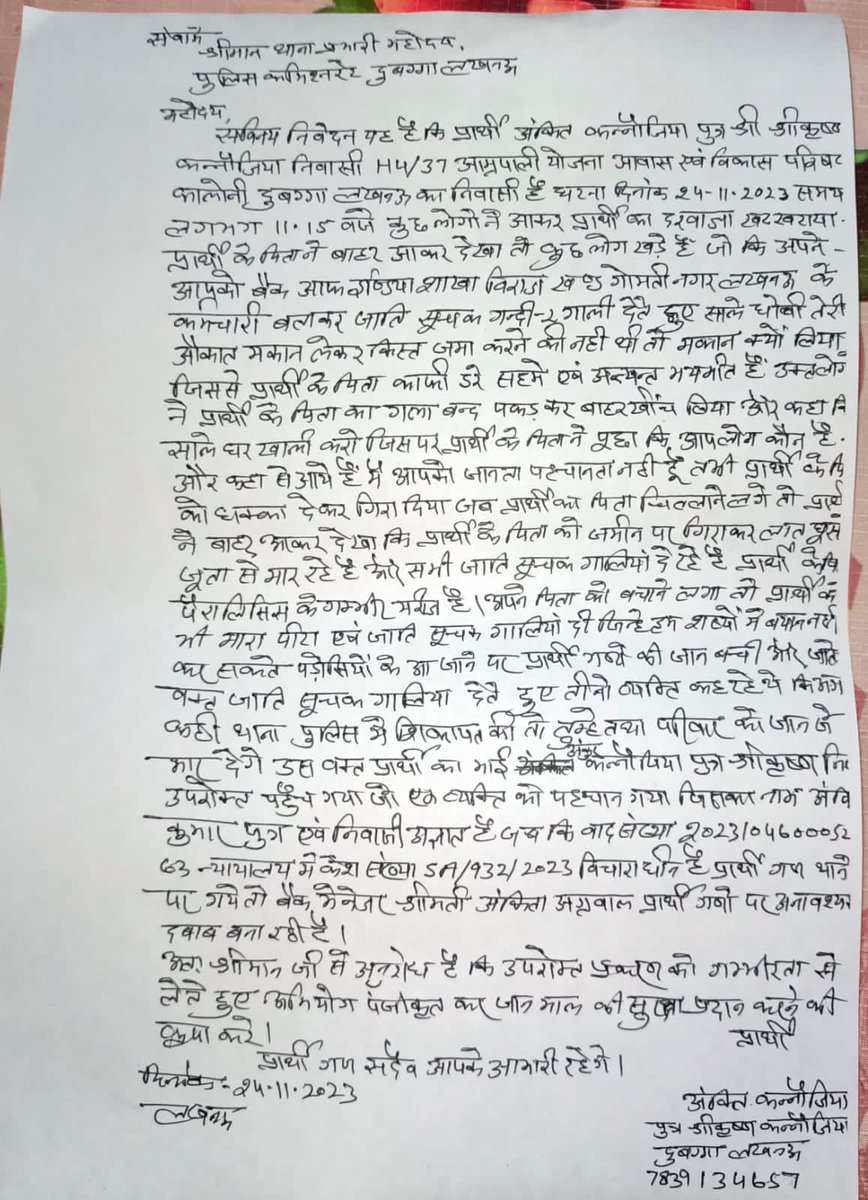 सेवामें
श्रीमान थाना प्रभारी महोदय,
पुलिस कमिश्नरेट दुबग्गा लखनऊ
महोदय,
सविनय निवेदन यह है कि प्रार्थी अंकित कन्नौजिया पुत्र श्री श्रीकृष्ण
कन्नौजिया निवासी H4/37 आम्रपाली योजना आवास एवं विकास परिषद
कालोनी दुबग्गा लखनऊ का निवासी है घटना दिनांक 24-11-2023 समय
लगभग 11.15 बजे कुछ लोगो ने आकर प्रार्थी का दरवाजा खटखटाया.
प्रार्थी के पिता ने बाहर आकर देखा तो कुछ लोग खड़े है जो कि अपने-
आपको बैंक आफ इण्डिया शाखा विराज खण्ड गोमती नगर लखनऊ के
कर्मचारी बताकर जाति सूचक गन्दी-२ गाली देते हुए साले धोबी तेरी
औकात मकान लेकर किस्त जमा करने की नही थी तो मकान क्यों लिया
जिससे प्रार्थी के पिता काफी डरे सहमे एवं अत्यन्त भयभीत हैं उक्त लोगों
ने प्रार्थी के पिता का गला बन्द पकड़ कर बाहर खींच लिया और कहा कि
साले घर खाली करो जिस पर प्रार्थी के पिता ने पूछा कि आपलोग कौन है.
और कहा से आये हैं मै आपको जानता पहचानता नही हूँ तभी प्रार्थी के पि
को धक्का देकर गिरा दिया जब प्रार्थी का पिता चिल्लाने लगे तो प्रार्थी
ने बाहर आकर देखा कि प्रार्थी के पिता को जमीन पर गिराकर लात घूसे
जूता से मार रहे है और सभी जाति सूचक गालियां दे रहे है प्रार्थी के पि
पैरालिसिस के गम्भीर मरीज है। अपने पिता को बचाने लगा तो प्रार्थी के
भी मारा पीटा एवं जाति सूचक गालियां दी जिन्हे हम शब्दों में बयान नही
कर सकते पड़ोसियों के आ जाने पर प्रार्थी गणो की जान बच्ची और जाते
वक्त जाति सूचक गालिया देते हुए तीनो व्यक्ति कह रहे थे कि अगर
कही थाना पुलिस मे शिकायत की तो तुम्हे तथा परिवार को जान से
मार देगे उस वक्त प्रार्थी का भाई कन्नौजिया पुत्र श्रीकृष्ण नि
उपरोक्त पहुँच गया जो एक व्यक्ति को पहचान गया जिसका नाम
कुमार पुत्र एवं निवासी अज्ञात है जब कि वाद संख्या 2023104600052
63 न्यायालय में केश संख्या SA/932/2023 विचाराधीन है प्रार्थी गण थाने
पर गये तो बैंक मैनेजर श्रीमती अंकिता अग्रवाल प्रार्थी गणो पर अनावश्यक
दबाब बना रही है।
अतः श्रीमान जी से अनुरोध है कि उपरोक्त प्रकरण को गम्भीरता से
लेते हुए अभियोग पंजीकृत कर जान माल की सुरक्षा प्रदान करने की
कृपा करे।
प्रार्थी
प्रार्थी गण सदैव आपके आभारी रहेगे।
दिनांक:- 24.11.2023
लखनऊ
अंकित कन्नौजिया
पुत्र श्रीकृष्ण कन्नौजिया
दुबग्गा लखनऊ
7839134657